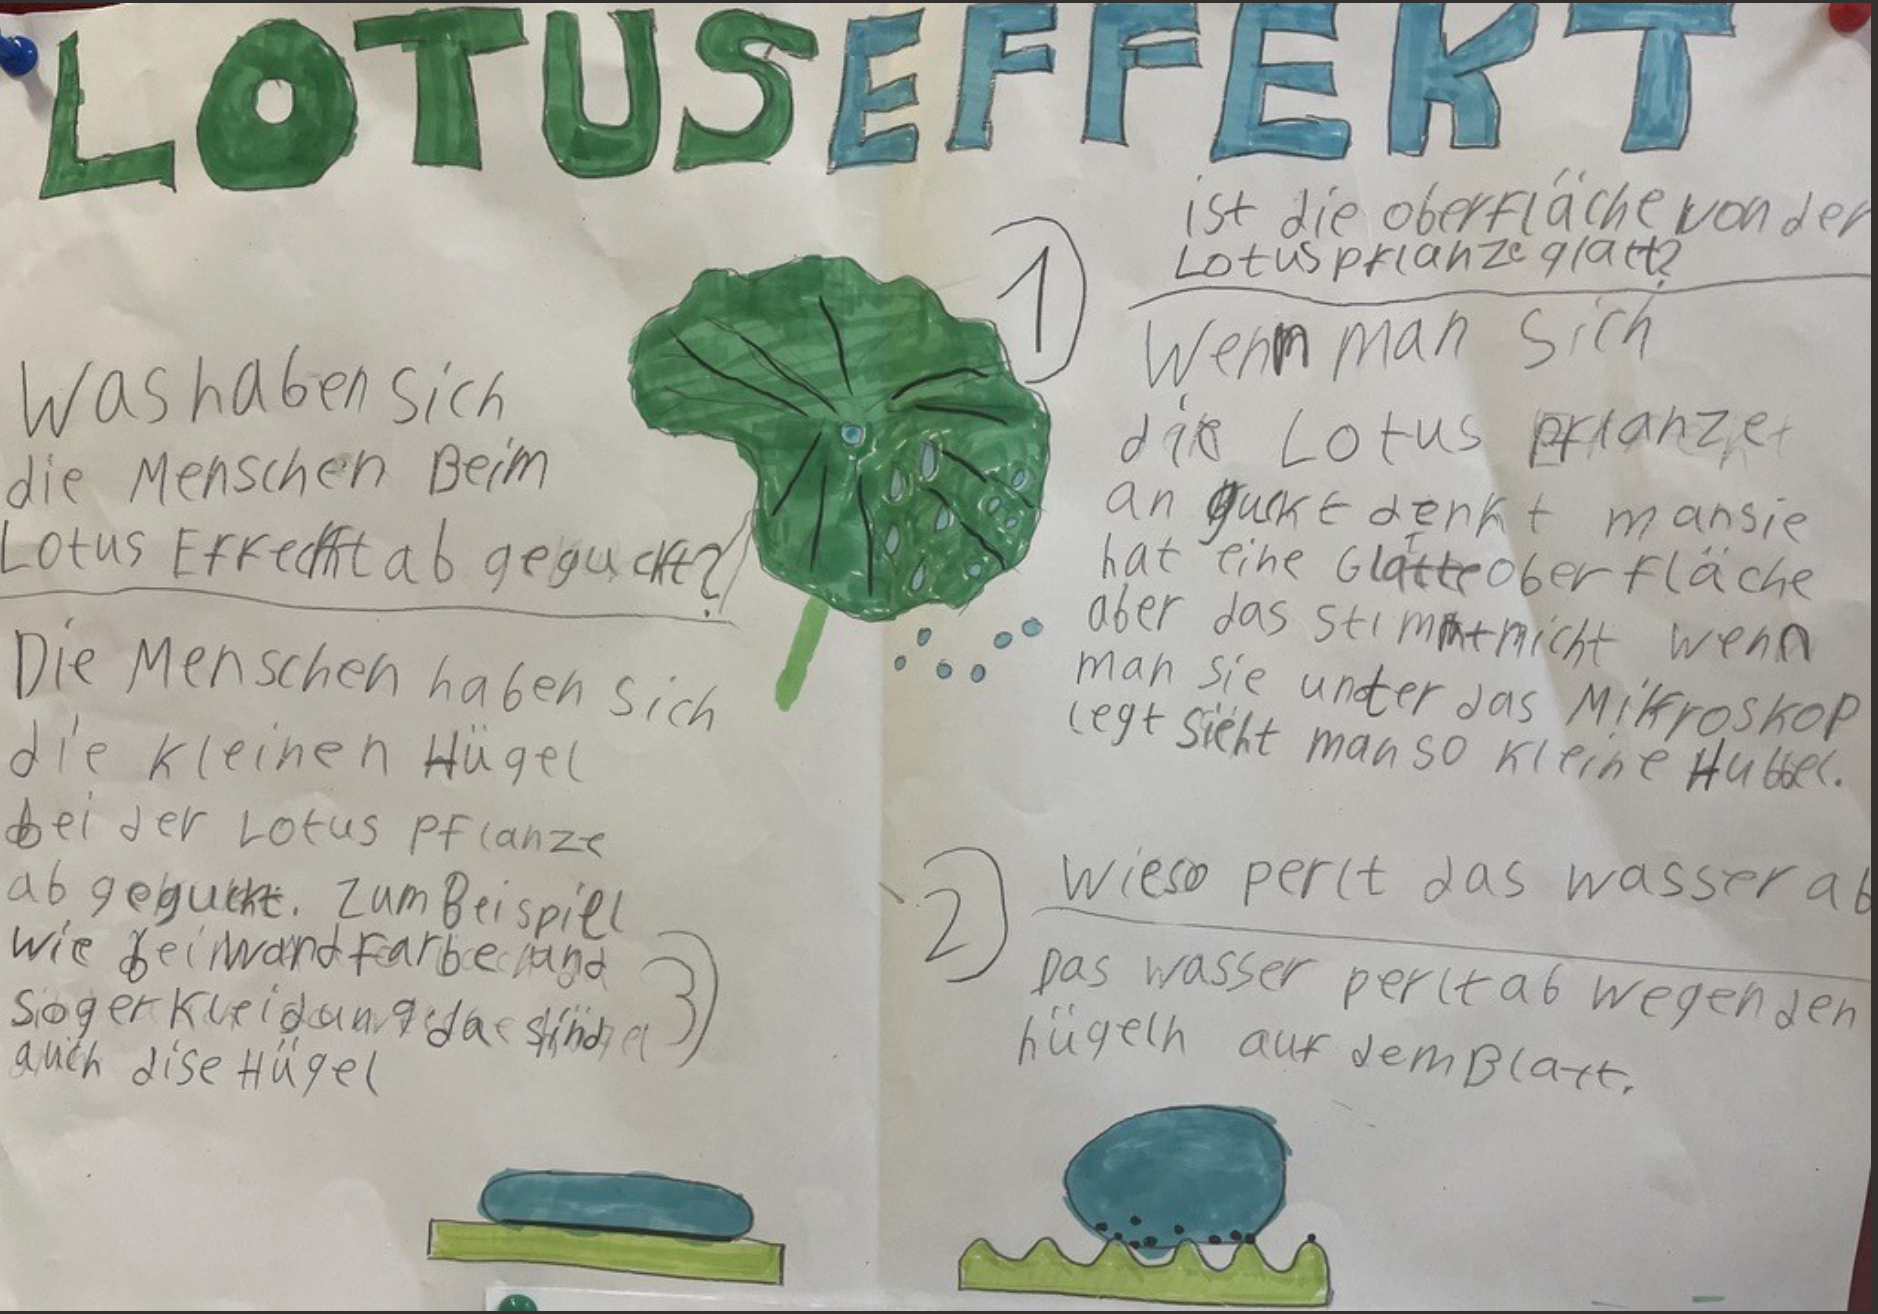 LOTUSEFFEKT
1
ist die oberfläche von der
Lotuspflanze glatt?
Wenn man sich
die Lotus pflanze
an guckt denkt man sie
hat eine Glatte oberfläche
aber das stimmt nicht wenn
man sie unter das Mikroskop
legt sieht man so kleine Hubbel.
2
Wieso perlt das wasser ab
Das wasser perlt ab wegen den
hügeln auf dem Blatt.
Was haben sich
die Menschen Beim
Lotus Effeckt ab geguckt?
Die Menschen haben sich
die kleinen Hügel
bei der Lotus pflanze
ab geguckt. Zum Beispiel
wie bei Wandfarbe und
soger Kleidung da sind
auch dise Hügel
3